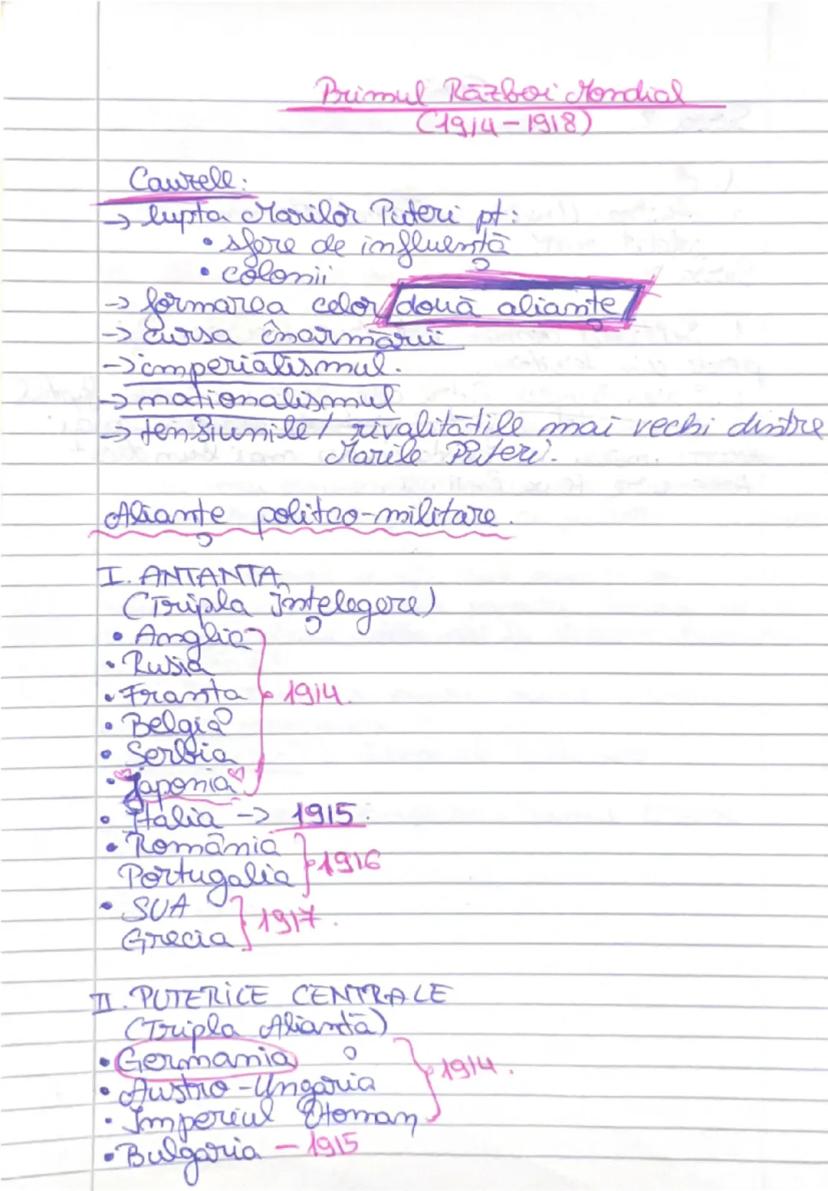 Primul Război Mondial
(1914-1918)
Cauzele:
→ lupta Marilor Puteri pt:
• sfere de influență
• colonii
→ formarea celor două alianțe
→ cursa înarmării
→ imperialismul.
→ naționalismul
→ tensiunile/rivalitățile mai vechi dintre
Marile Puteri.
Alianțe politco-militare.
I. ANTANTA
(Tripla Înțelegere)
• Anglia
• Rusia
• Franța } 1914.
• Belgia
• Serbia
• Japonia
• Italia -> 1915.
• România
Portugalia } 1916
• SUA
Grecia } 1917.
II. PUTERICE CENTRALE
(Tripla Alianță)
• Germania
• Austro-Ungaria } 1914.
• Imperiul Otoman
• Bulgaria - 1915